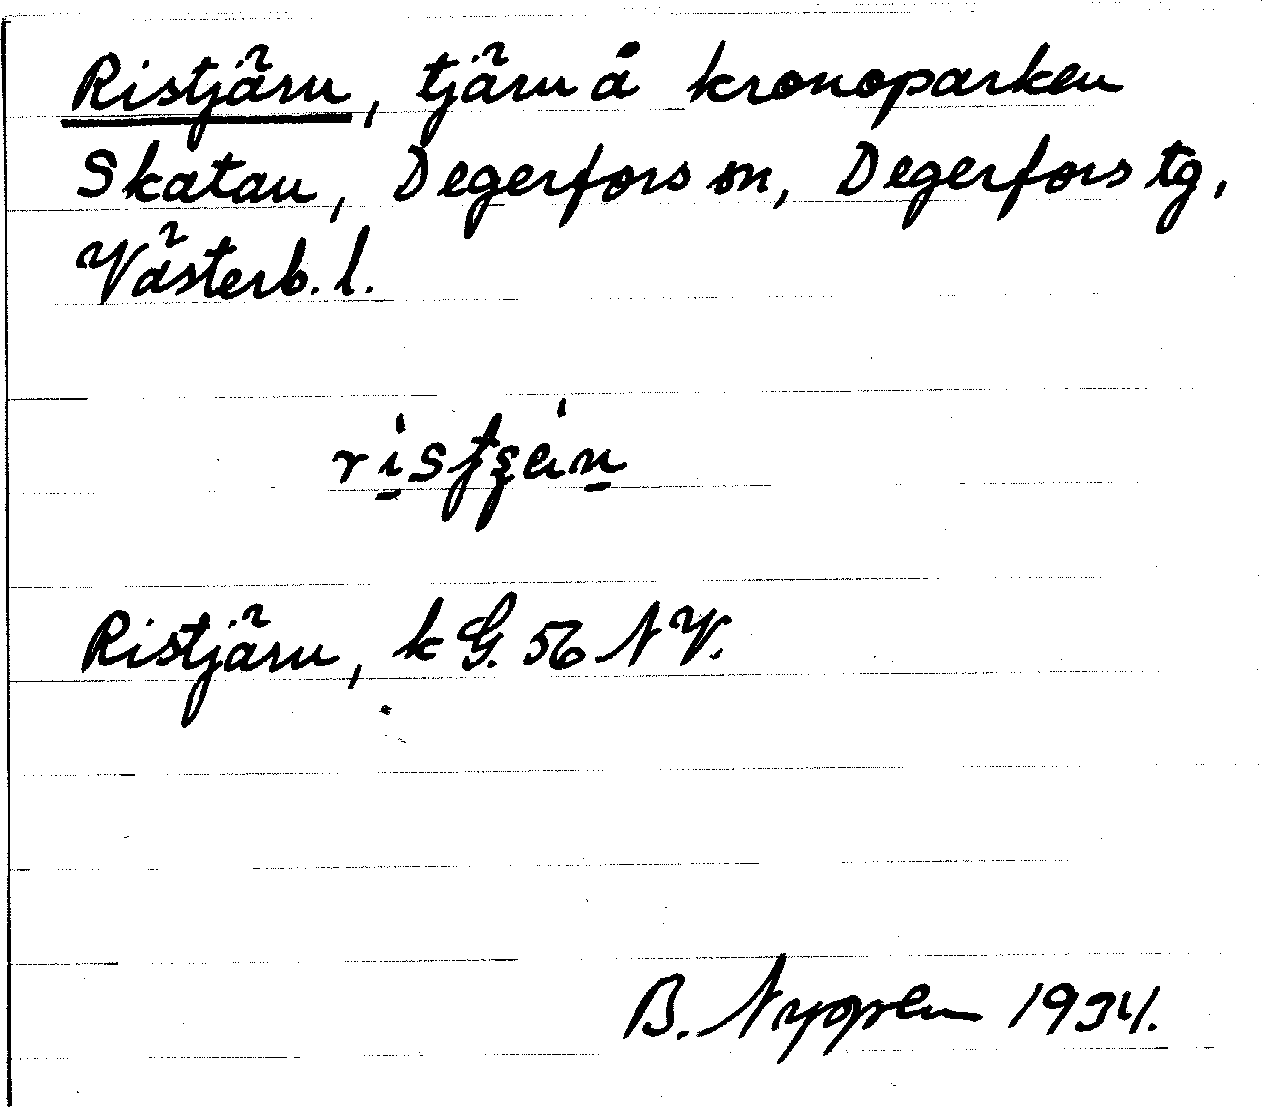 Ristjärn, tjärn å kronoparken
Skatan, Degerfors sn, Degerfors tg,
Västerb. l.
Ristjärn, k G. 56 NV.
B. Nygren 1934.